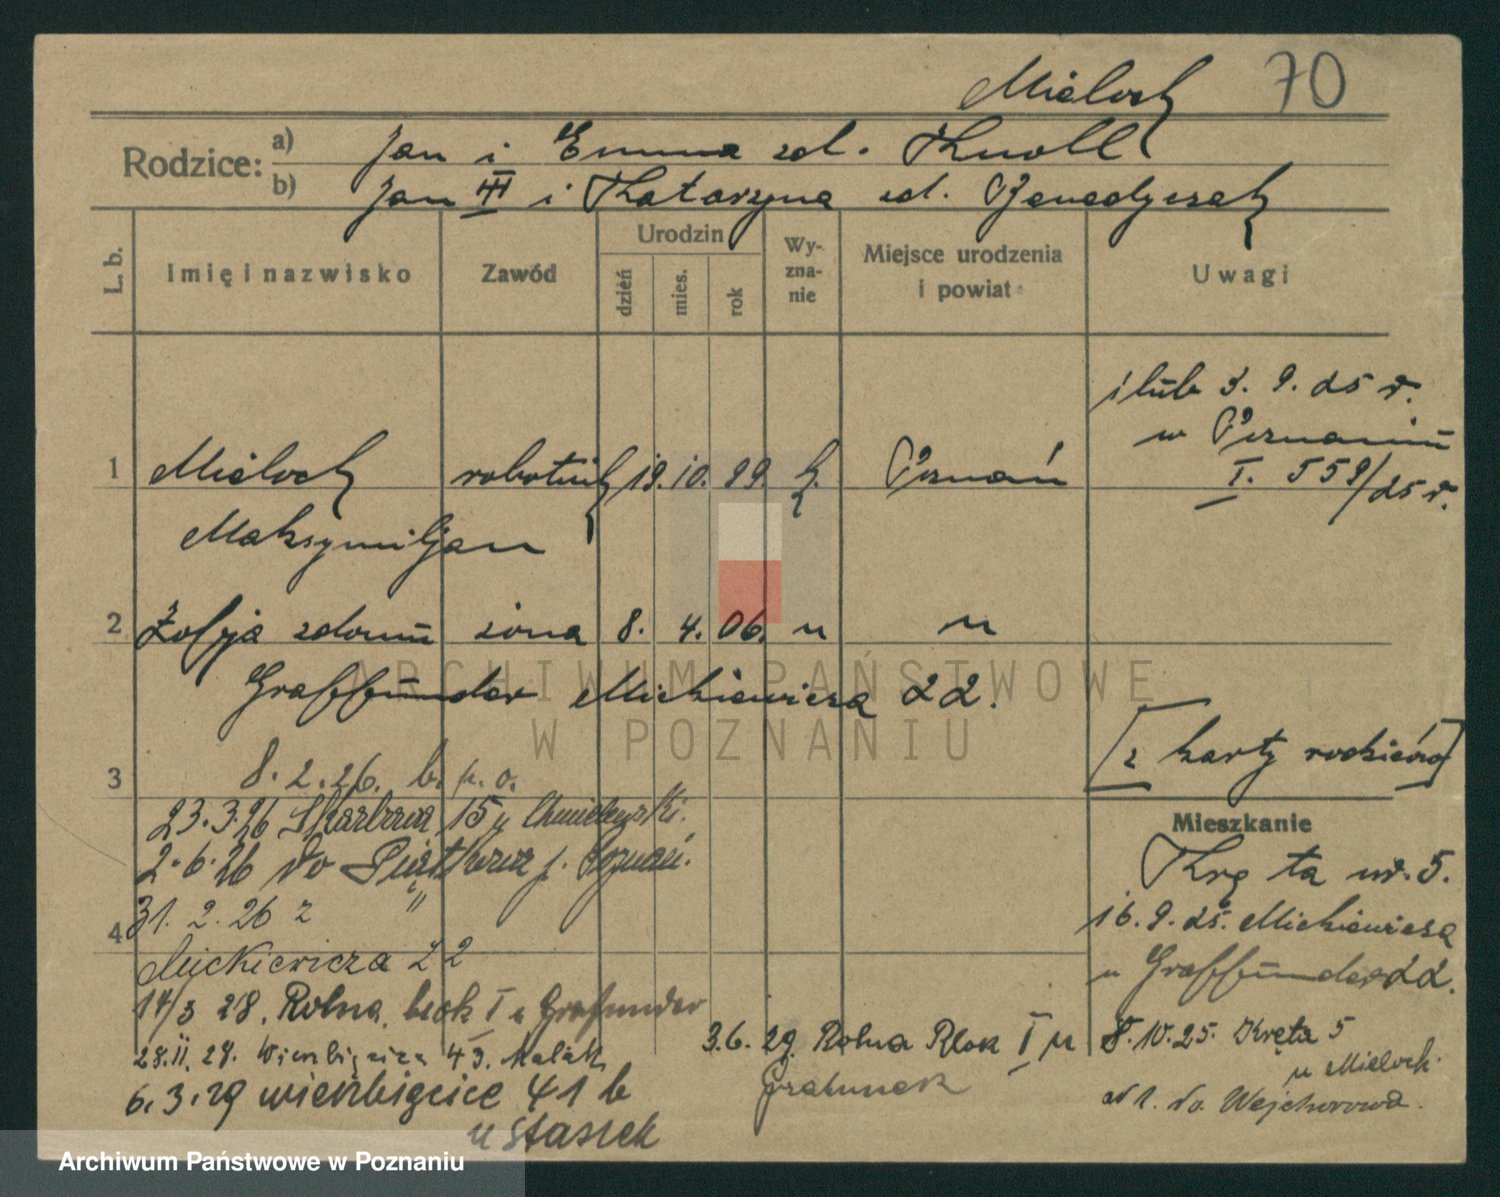 Mieloch 70
Rodzice: a) Jan i Emma zd. Knoll
b) Jan III i Katarzyna zd. Benedyczak
L. b. Imię i nazwisko Zawód Urodzin dzień mies. rok Wy-zna-nie Miejsce urodzenia i powiat Uwagi
ślub 3. 9. 25 r.
w Poznaniu
I. 559/25 r.
1 Mieloch robotnik 19. 10. 99. k. Poznań
Maksymiljan
2 Zofja zdomu żona 8. 4. 06. u u
Graffunder Mickiewicza 22.
[z karty rodziców]
3 8. 2. 26. b. p. o.
23.3.26 Skarbowa 15 u Chmielewski.
2.6.26 do Piątkowa p. Poznań.
31. 2. 26 z "
4 Mickiewicza 22
14/3 28. Rolna, blok I u Grafunder
28.II.29. Wierzbięcice 43. Malak
6.3.29 wierzbięcice 41 b
u Stasiek
3.6.29. Rolna Blok I u
Grafunder
Mieszkanie
Kręta nr. 5.
16. 9. 25. Mickiewicza
u Graffunder 22.
8.10.25. Kręta 5
u Mieloch.
do Wejherowa.
ARCHIWUM PAŃSTWOWE
W POZNANIU
Archiwum Państwowe w Poznaniu